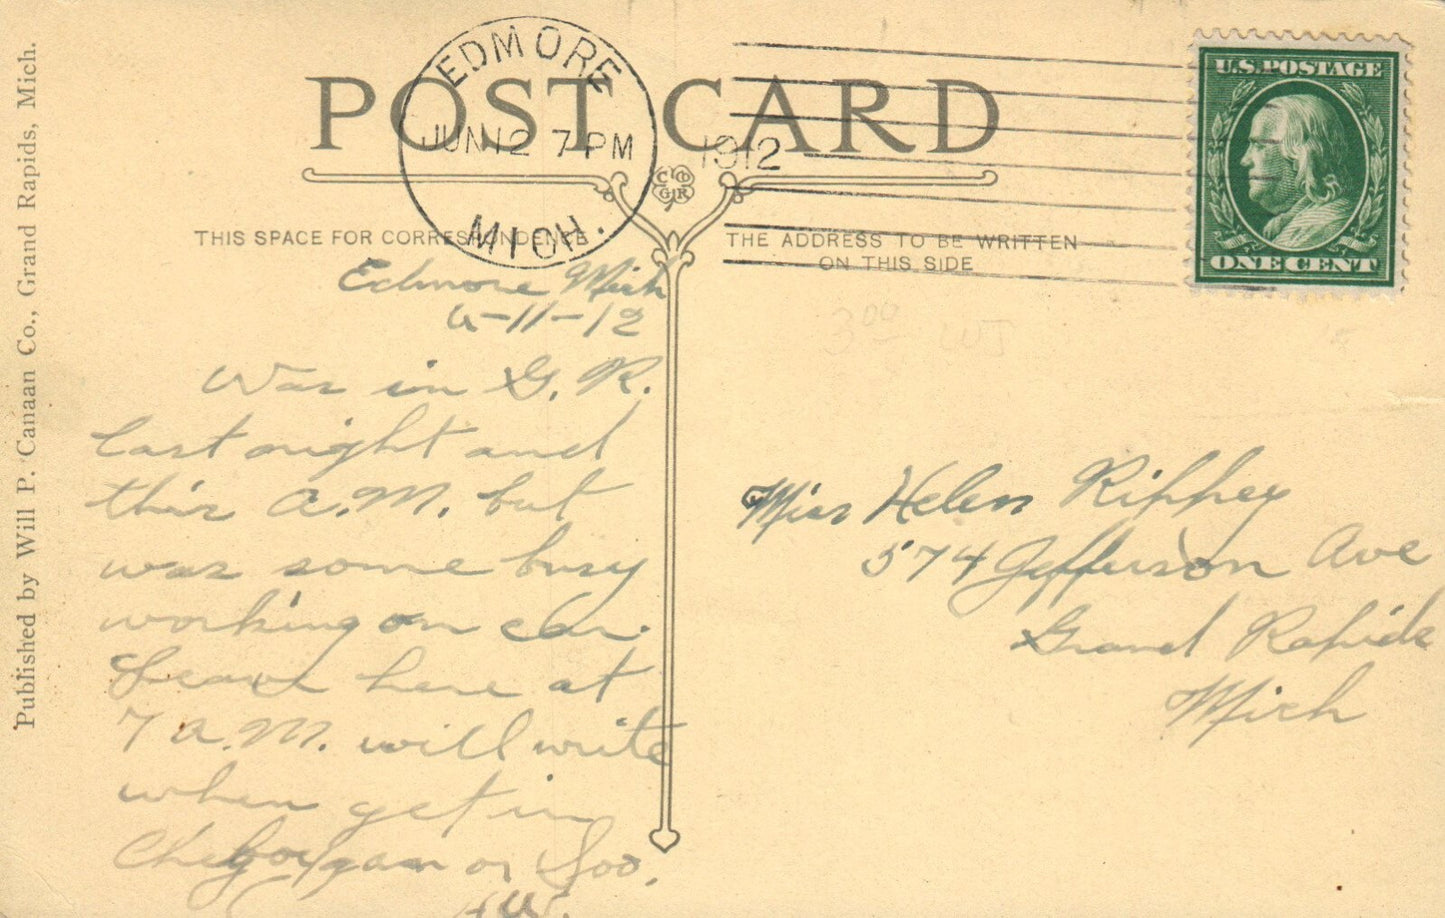 POST CARD
EDMORE
JUN 12 7 PM
1912
MICH.
U.S. POSTAGE
ONE CENT
THIS SPACE FOR CORRESPONDENCE
THE ADDRESS TO BE WRITTEN
ON THIS SIDE
Edmore Mich
6-11-12
Was in G. R.
last night and
this A.M. but
was some busy
working on car.
Leave here at
7 A.M. will write
when get in
Cheboygan or Soo.
Miss Helen Rippey
574 Jefferson Ave
Grand Rapids
Mich
3 00
Published by Will P. Canaan Co., Grand Rapids, Mich.